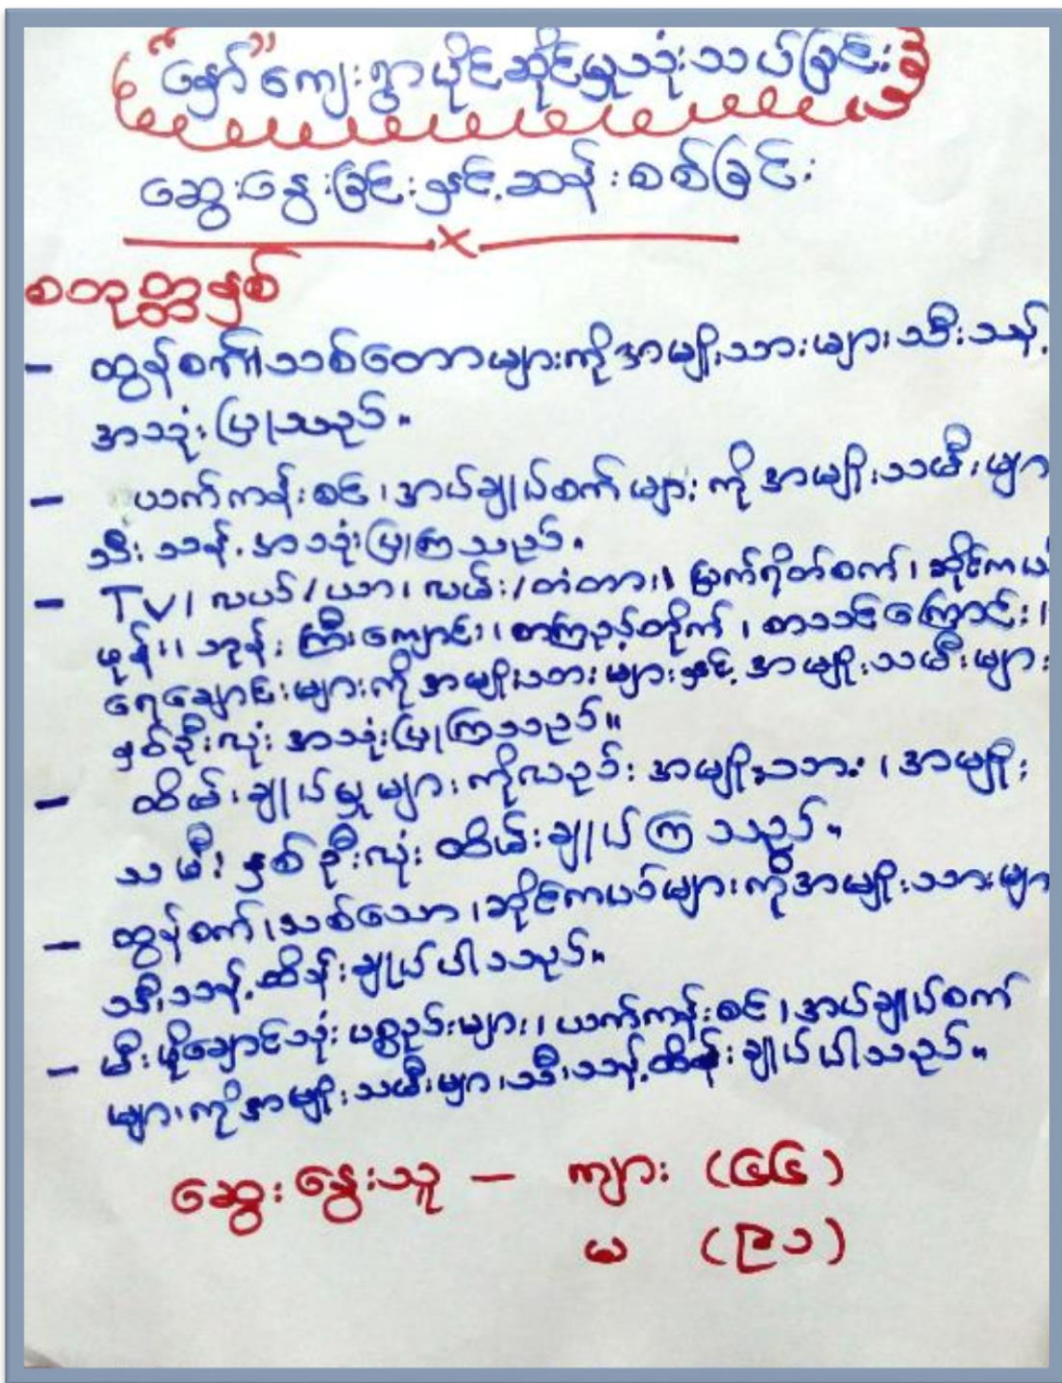 "နော်" ကျေးရွာပိုင်ဆိုင်မှုသုံးသပ်ခြင်း
ဆွေးနွေးခြင်းနှင့်ဆန်းစစ်ခြင်း
စဘုတ္တနှစ်
- ထွန်စက်၊သစ်တောများကိုအမျိုးသားများသီးသန့်
အသုံးပြုသည်။
- ယက်ကန်းစင်၊အပ်ချုပ်စက်များကိုအမျိုးသမီးများ
သီးသန့်အသုံးပြုကြသည်။
- TV၊ လယ်/ယာ၊ လမ်း/တံတား၊ မြက်ရိတ်စက်၊ ဆိုင်ကယ်
ဖုန်း၊ ဘုန်းကြီးကျောင်း၊ စာကြည့်တိုက်၊ စာသင်ကြောင်း၊
ရေချောင်းများကိုအမျိုးသားများနှင့်အမျိုးသမီးများ
နှစ်ဦးလုံး အသုံးပြုကြသည်။
- ထိမ်းချုပ်မှုများကိုလည်း အမျိုးသား၊ အမျိုး
သမီး နှစ်ဦးလုံး ထိမ်းချုပ်ကြသည်။
- ထွန်စက်၊သစ်သော၊ဆိုင်ကယ်များကိုအမျိုးသားများ
သီးသန့်ထိန်းချုပ်ပါသည်။
- မီးဖိုချောင်သုံးပစ္စည်းများ၊ ယက်ကန်းစင်၊အပ်ချုပ်စက်
များကိုအမျိုးသမီးများသီးသန့်ထိန်းချုပ်ပါသည်။
ဆွေးနွေးသူ - ကျား (၄၄)
မ (၉၁)